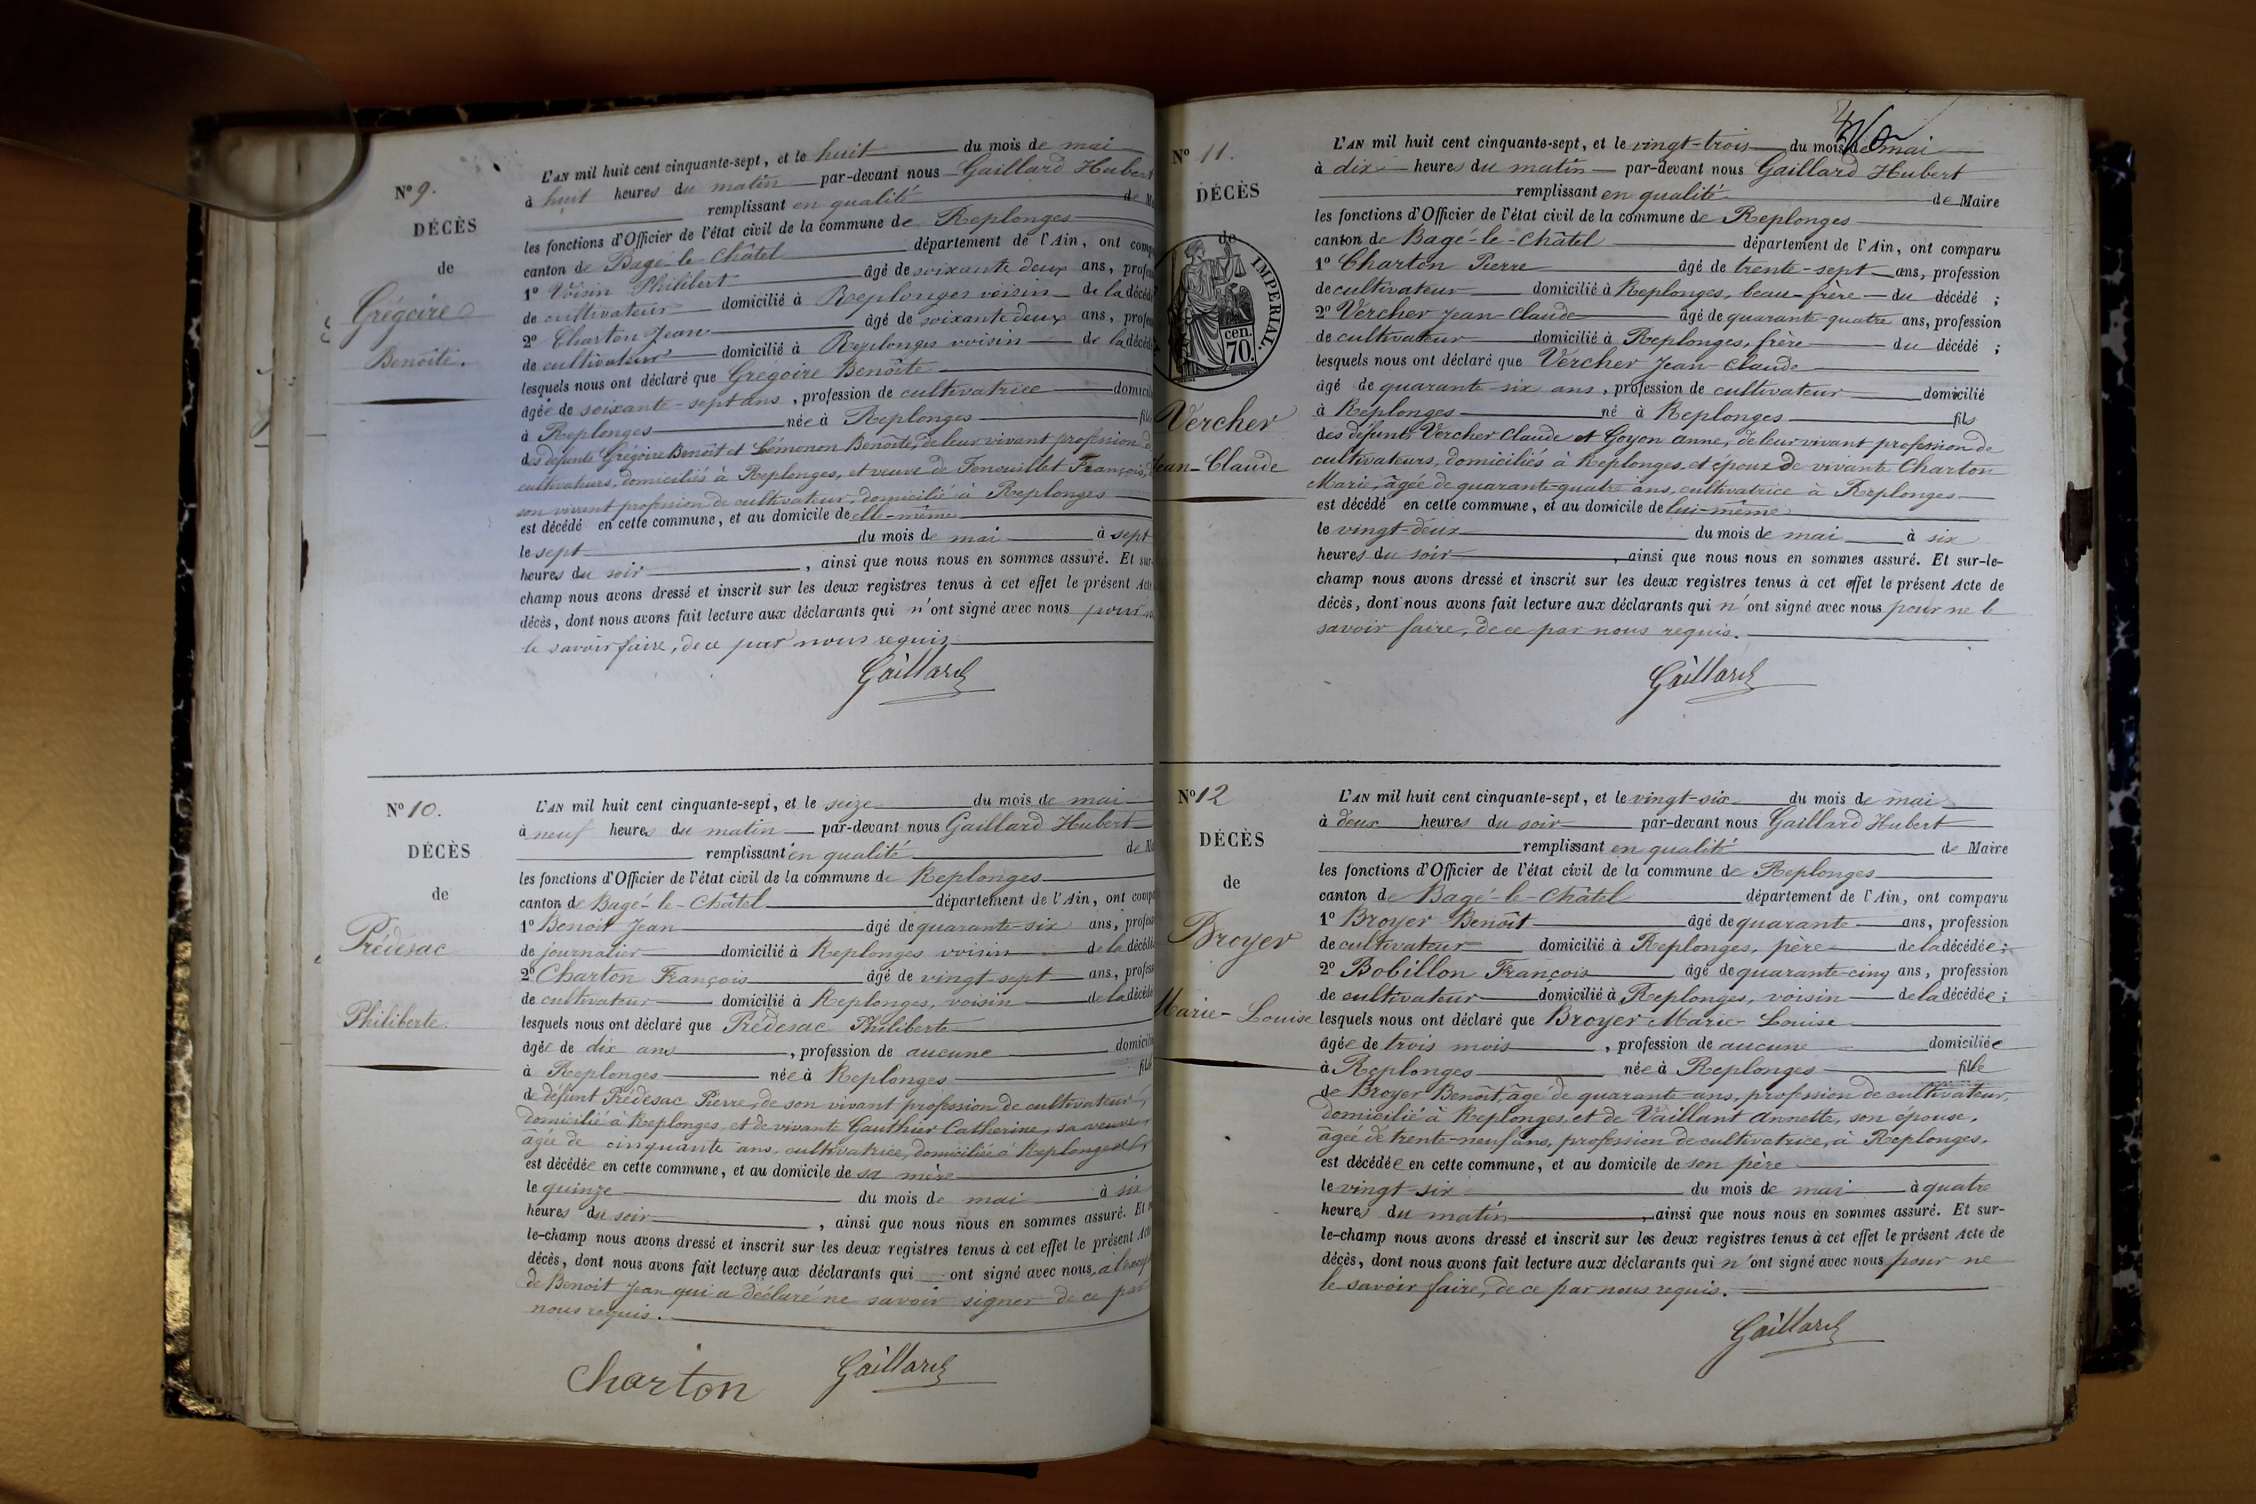 N° 9.
DÉCÈS
de
Grégoire
Benoîte.
L'AN mil huit cent cinquante-sept, et le huit du mois de mai
à huit heures du matin par-devant nous Gaillard Hubert
remplissant en qualité de
les fonctions d'Officier de l'état civil de la commune de Replonges
canton de Bagé-le-Châtel département de l'Ain, ont comp
1° Voisin Philibert âgé de soixante deux ans, profes
de cultivateur domicilié à Replonges voisin de la décéd
2° Charton Jean âgé de soixante deux ans, profes
de cultivateur domicilié à Replonges voisin de la décéd
lesquels nous ont déclaré que Grégoire Benoîte
âgée de soixante-sept ans, profession de cultivatrice domicil
à Replonges née à Replonges fil
des défunts Grégoire Benoît et Lémonon Benoîte, de leur vivant profession d
cultivateurs, domiciliés à Replonges, et veuve de Fenouillet François,
son vivant profession de cultivateur, domicilié à Replonges
est décédé en cette commune, et au domicile de elle-même
le sept du mois de mai à sept
heures du soir, ainsi que nous nous en sommes assuré. Et sur
champ nous avons dressé et inscrit sur les deux registres tenus à cet effet le présent Acte
décès, dont nous avons fait lecture aux déclarants qui n'ont signé avec nous pour ne
le savoir faire, de ce par nous requis
Gaillard
N° 10.
DÉCÈS
de
Prédesac
Philiberte.
L'AN mil huit cent cinquante-sept, et le seize du mois de mai
à neuf heures du matin par-devant nous Gaillard Hubert
remplissant en qualité de Ma
les fonctions d'Officier de l'état civil de la commune de Replonges
canton de Bagé-le-Châtel département de l'Ain, ont comp
1° Benoit Jean âgé de quarante-six ans, profes
de journalier domicilié à Replonges voisin de la décéd
2° Charton François âgé de vingt-sept ans, profes
de cultivateur domicilié à Replonges, voisin de la décéd
lesquels nous ont déclaré que Prédesac Philiberte
âgée de dix ans, profession de aucune domicili
à Replonges née à Replonges fill
de défunt Prédesac Pierre, de son vivant profession de cultivateur,
domicilié à Replonges, et de vivante Gauthier Catherine, sa veuve,
âgée de cinquante ans, cultivatrice, domiciliée à Replonges
est décédée en cette commune, et au domicile de sa mère
le quinze du mois de mai à six
heures du soir, ainsi que nous nous en sommes assuré. Et
le-champ nous avons dressé et inscrit sur les deux registres tenus à cet effet le présent Acte
décès, dont nous avons fait lecture aux déclarants qui ont signé avec nous, à l'excep
de Benoit Jean qui a déclaré ne savoir signer de ce par
nous requis.
Charton Gaillard
N° 11.
DÉCÈS
de
IMPERIAL.
cen.
70.
Vercher
Jean-Claude
L'AN mil huit cent cinquante-sept, et le vingt-trois du mois de mai
à dix heures du matin par-devant nous Gaillard Hubert
remplissant en qualité de Maire
les fonctions d'Officier de l'état civil de la commune de Replonges
canton de Bagé-le-Châtel département de l'Ain, ont comparu
1° Charton Pierre âgé de trente-sept ans, profession
de cultivateur domicilié à Replonges, beau-frère du décédé;
2° Vercher Jean-Claude âgé de quarante-quatre ans, profession
de cultivateur domicilié à Replonges, frère du décédé;
lesquels nous ont déclaré que Vercher Jean-Claude
âgé de quarante-six ans, profession de cultivateur domicilié
à Replonges né à Replonges fils
des défunts Vercher Claude et Goyon Anne, de leur vivant profession de
cultivateurs, domiciliés à Replonges, et époux de vivante Charton
Marie, âgée de quarante-quatre ans, cultivatrice à Replonges
est décédé en cette commune, et au domicile de lui-même
le vingt-deux du mois de mai à six
heures du soir, ainsi que nous nous en sommes assuré. Et sur-le-
champ nous avons dressé et inscrit sur les deux registres tenus à cet effet le présent Acte de
décès, dont nous avons fait lecture aux déclarants qui n'ont signé avec nous pour ne le
savoir faire, de ce par nous requis.
Gaillard
N° 12
DÉCÈS
de
Broyer
Marie-Louise
L'AN mil huit cent cinquante-sept, et le vingt-six du mois de mai
à deux heures du soir par-devant nous Gaillard Hubert
remplissant en qualité de Maire
les fonctions d'Officier de l'état civil de la commune de Replonges
canton de Bagé-le-Châtel département de l'Ain, ont comparu
1° Broyer Benoît âgé de quarante ans, profession
de cultivateur domicilié à Replonges, père de la décédée;
2° Bobillon François âgé de quarante-cinq ans, profession
de cultivateur domicilié à Replonges, voisin de la décédée;
lesquels nous ont déclaré que Broyer Marie-Louise
âgée de trois mois, profession de aucune domiciliée
à Replonges née à Replonges fille
de Broyer Benoît, âgé de quarante ans, profession de cultivateur,
domicilié à Replonges, et de Vaillant Annette, son épouse,
âgée de trente-neuf ans, profession de cultivatrice, à Replonges,
est décédée en cette commune, et au domicile de son père
le vingt-six du mois de mai à quatre
heures du matin, ainsi que nous nous en sommes assuré. Et sur-
le-champ nous avons dressé et inscrit sur les deux registres tenus à cet effet le présent Acte de
décès, dont nous avons fait lecture aux déclarants qui n'ont signé avec nous pour ne
le savoir faire, de ce par nous requis.
Gaillard